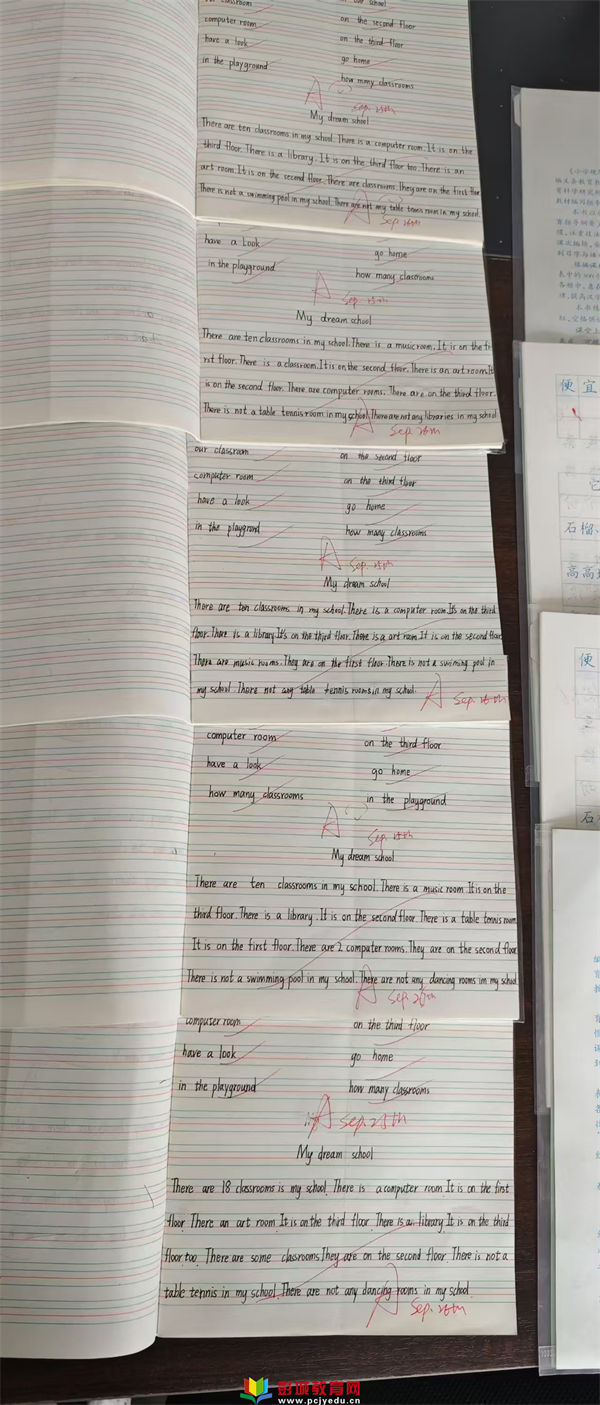 our classroom
our school
computer room
on the second floor
have a look
on the third floor
in the playground
go home
how many classrooms
A
Sep. 25th
My dream school
There are ten classrooms in my school. There is a computer room. It is on the
third floor. There is a library. It is on the third floor too. There is an
art room. It is on the second floor. There are classrooms. They are on the first floor
There is not a swimming pool in my school. There are not my table tennis room in my school.
A
Sep. 26th
have a Look
go home
in the playground
how many classrooms
A
Sep. 25th
My dream school
There are ten classrooms in my school. There is a music room. It is on the fi
rst floor. There is a classroom. It is on the second floor. There is an art room. It
is on the second floor. There are computer rooms. There are on the third floor.
There is not a table tennis room in my school. There are not any libraries in my school
A
Sep. 26th
our classroom
on the second floor
computer room
on the third floor
have a look
go home
in the playgrond
how many classrooms
A
Sep. 25th
My dream school
There are ten classrooms in my school. There is a computer room. It's on the third
floor. There is a library. It's on the third floor. There is a art room. It is on the second floor.
There are music rooms. They are on the first floor. There is not a swiming pool in
my school. There not any table tennis rooms in my school.
A
Sep. 26th
computer room
on the third floor
have a look
go home
how many classrooms
in the playground
A
Sep. 25th
My dream school
There are ten classrooms in my school. There is a music room. It is on the
third floor. There is a library. It is on the second floor. There is a table tennis room
It is on the first floor. There are 2 computer rooms. They are on the second floor
There is not a swimming pool in my school. There are not any dancing rooms im my school
A
Sep. 26th
computer room
on the third floor
have a look
go home
in the playground
how many classrooms
A
Sep. 25th
My dream school
There are 18 classrooms is my school. There is a computer room. It is on the first
floor. There an art room. It is on the third floor. There is an library. It is on the third
floor too. There are some classrooms They are on the second floor. There is not a
table tennis in my school. There are not any dancing rooms in my school.
A
Sep. 26th
便宜
石榴、
高高
便
石
彭城教育网
www.pcjyedu.cn